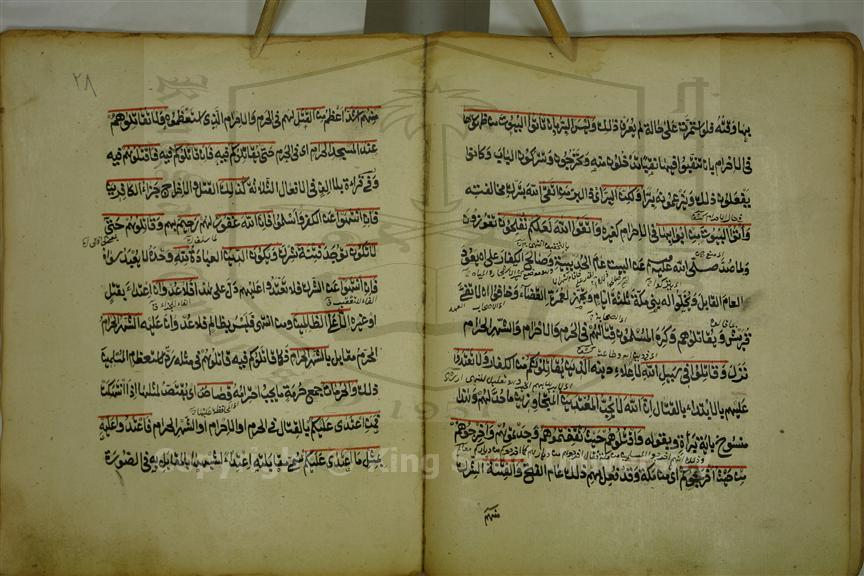 بها وقته فلو استمرت على حالة لم يعرف ذلك وليس البر بان تاتوا البيوت من ظهورها
في الاحرام بان تنقبوا فيها نقبا تدخلون منه وتخرجون وتتركون الباب وكانوا
يفعلون ذلك ويزعمونه برا ولكن البر اي ذا البر من اتقى الله بترك مخالفته
واتوا البيوت من ابوابها في الاحرام كغيره واتقوا الله لعلكم تفلحون تفوزون
ولما صد صلى الله عليه وسلم عن البيت عام الحديبية وصالح الكفار على ان يعود
العام القابل ويخلوا له مكة ثلاثة ايام وتجهز لعمرة القضاء وخافوا ان لا تفي
قريش ويقاتلوهم وكره المسلمون قتالهم في الحرم والاحرام والشهر الحرام
نزل وقاتلوا في سبيل الله لاعلاء دينه الذين يقاتلونكم من الكفار ولا تعتدوا
عليهم بالابتداء بالقتال ان الله لا يحب المعتدين المتجاوزين ما حد لهم وهذا
منسوخ باية براءة وبقوله واقتلوهم حيث ثقفتموهم وجدتموهم واخرجوهم
من حيث اخرجوكم اي من مكة وقد فعل بهم ذلك عام الفتح والفتنة الشرك
منهم
٢٨
منهم اشد اعظم من القتل لهم في الحرم والاحرام الذي استعظمتموه ولا تقاتلوهم
عند المسجد الحرام اي في الحرم حتى يقاتلوكم فيه فان قاتلوكم فيه فاقتلوهم فيه
وفي قراءة بلا الف في الافعال الثلاثة كذلك القتل والاخراج جزاء الكافرين
فان انتهوا عن الكفر واسلموا فان الله غفور لهم رحيم بهم وقاتلوهم حتى
لا تكون توجد فتنة شرك ويكون الدين العبادة لله وحده لا يعبد سواه
فان انتهوا عن الشرك فلا تعتدوا عليهم دل على هذا فلا عدوان اعتداء بقتل
او غيره الا على الظالمين ومن انتهى فليس بظالم فلا عدوان عليه الشهر الحرام
المحرم مقابل بالشهر الحرام فكما قاتلوكم فيه قاتلوهم في مثله رد لاستعظام المسلمين
ذلك والحرمات جمع حرمة ما يجب احترامه قصاص اي يقتص بمثلها اذا انتهكت
فمن اعتدى عليكم بالقتال في الحرم او الاحرام او الشهر الحرام فاعتدوا عليه
بمثل ما اعتدى عليكم سمي مقابلته اعتداء لشبهها بالمقابل به في الصورة